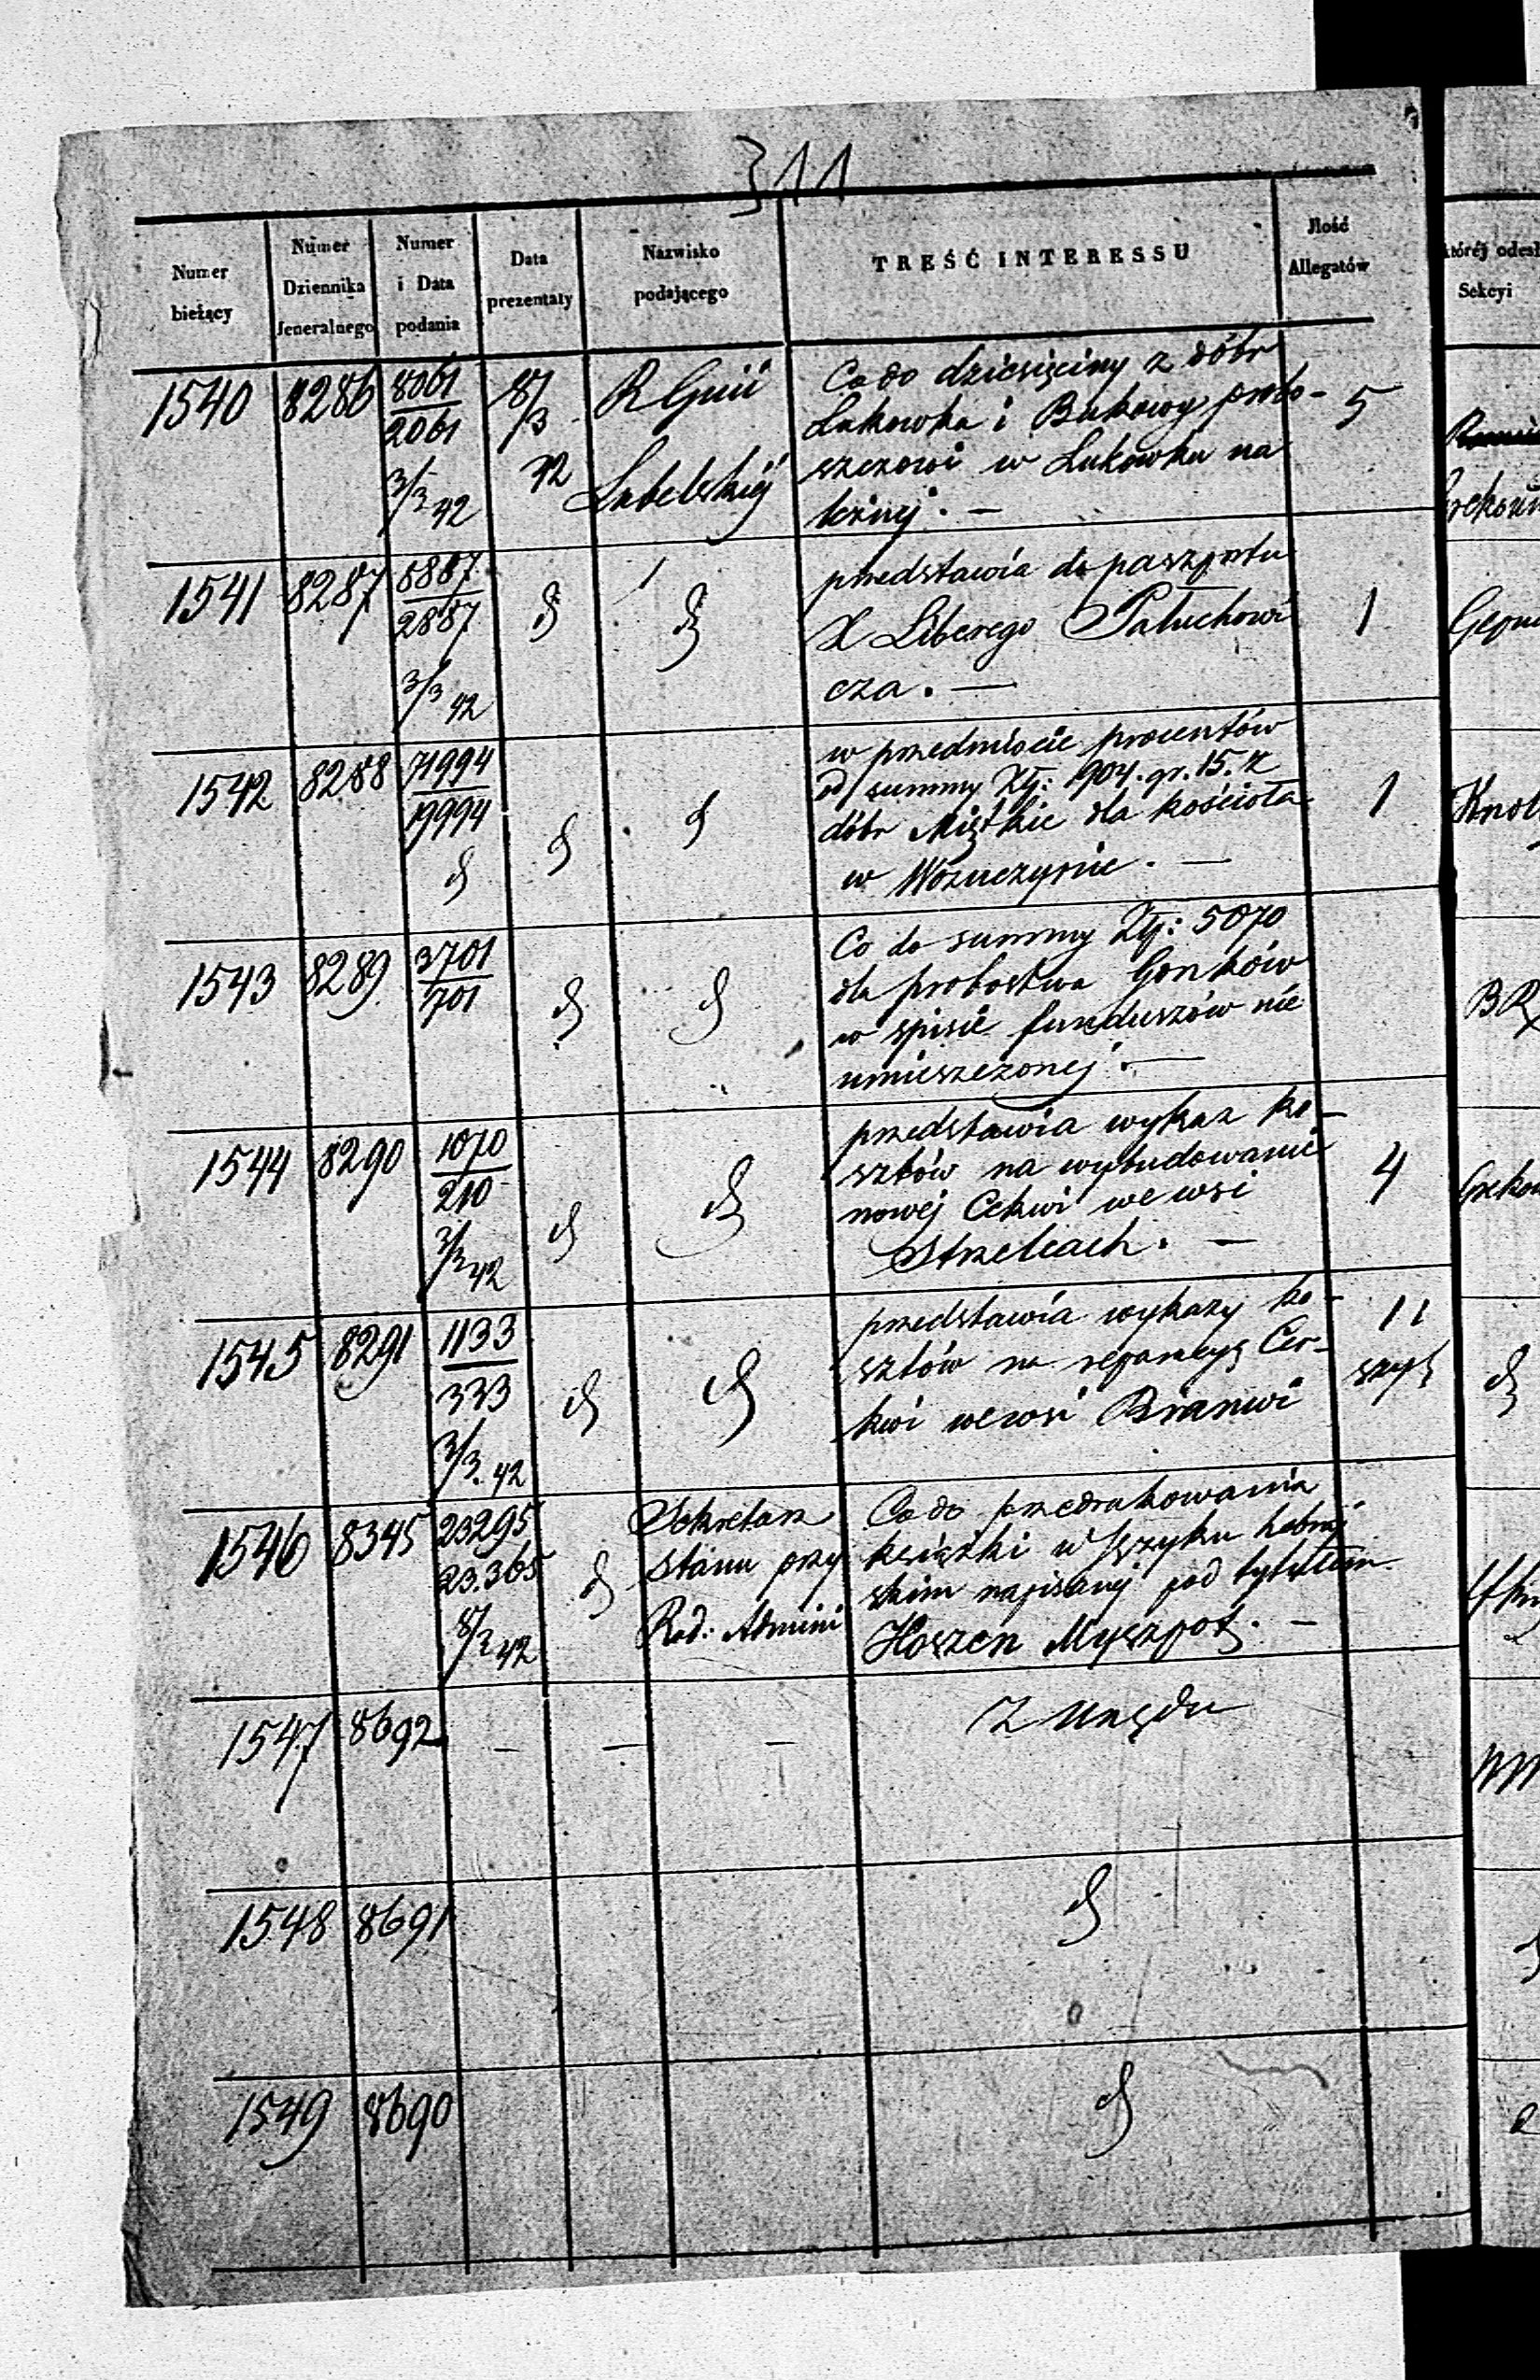 311
Numer bieżący | Numer Dziennika Jeneralnego | Numer i Data podania | Data prezentaty | Nazwisko podającego | TREŚĆ INTERESSU | Ilość Allegatów | Sekcyi
1540 8286 8061/2061 3/3 42 8/3 42 R Gnii Lubelskiéj
Co do dziesięciny z dóbr
Lukowka i Bukowy, probo-
szczowi w Lukowku na
leżnéj. — 5
1541 8287 5887/2887 3/3 42 d d
przedstawia do paszportu
X Liberego Pałuchowi
cza. — 1
1542 8288 71994/19994 d d d
w przedmiocie procentów
od summy Złp: 1904. gr. 15. z
dóbr Miętkie dla kościoła
w Wożuczynie. — 1
1543 8289 3701/701 d d
Co do summy Złp: 5070
dla probostwa Gonków
w spisie funduszów nie
umieszczonej. —
1544 8290 1070/210 3/3 42 d d
przedstawia wykaz ko-
sztów na wybudowanie
nowéj Cekwi we wsi
Strzelcach. — 4
1545 8291 1133/333 3/3. 42 d d
przedstawia wykazy ko-
sztów na reparacyę Cer-
kwi we wsi 11 d
1546 8345 23295 23.365 8/2 42 d
Sekretarz Stanu przy Rad: Admini
Co do przedrukowania
książki w Języku hebraj
skim napisanéj pod tytułem
Hoszen Myszpot. —
1547 8692 — — —
Z Urzędu
1548 8691 d
1549 8690 d